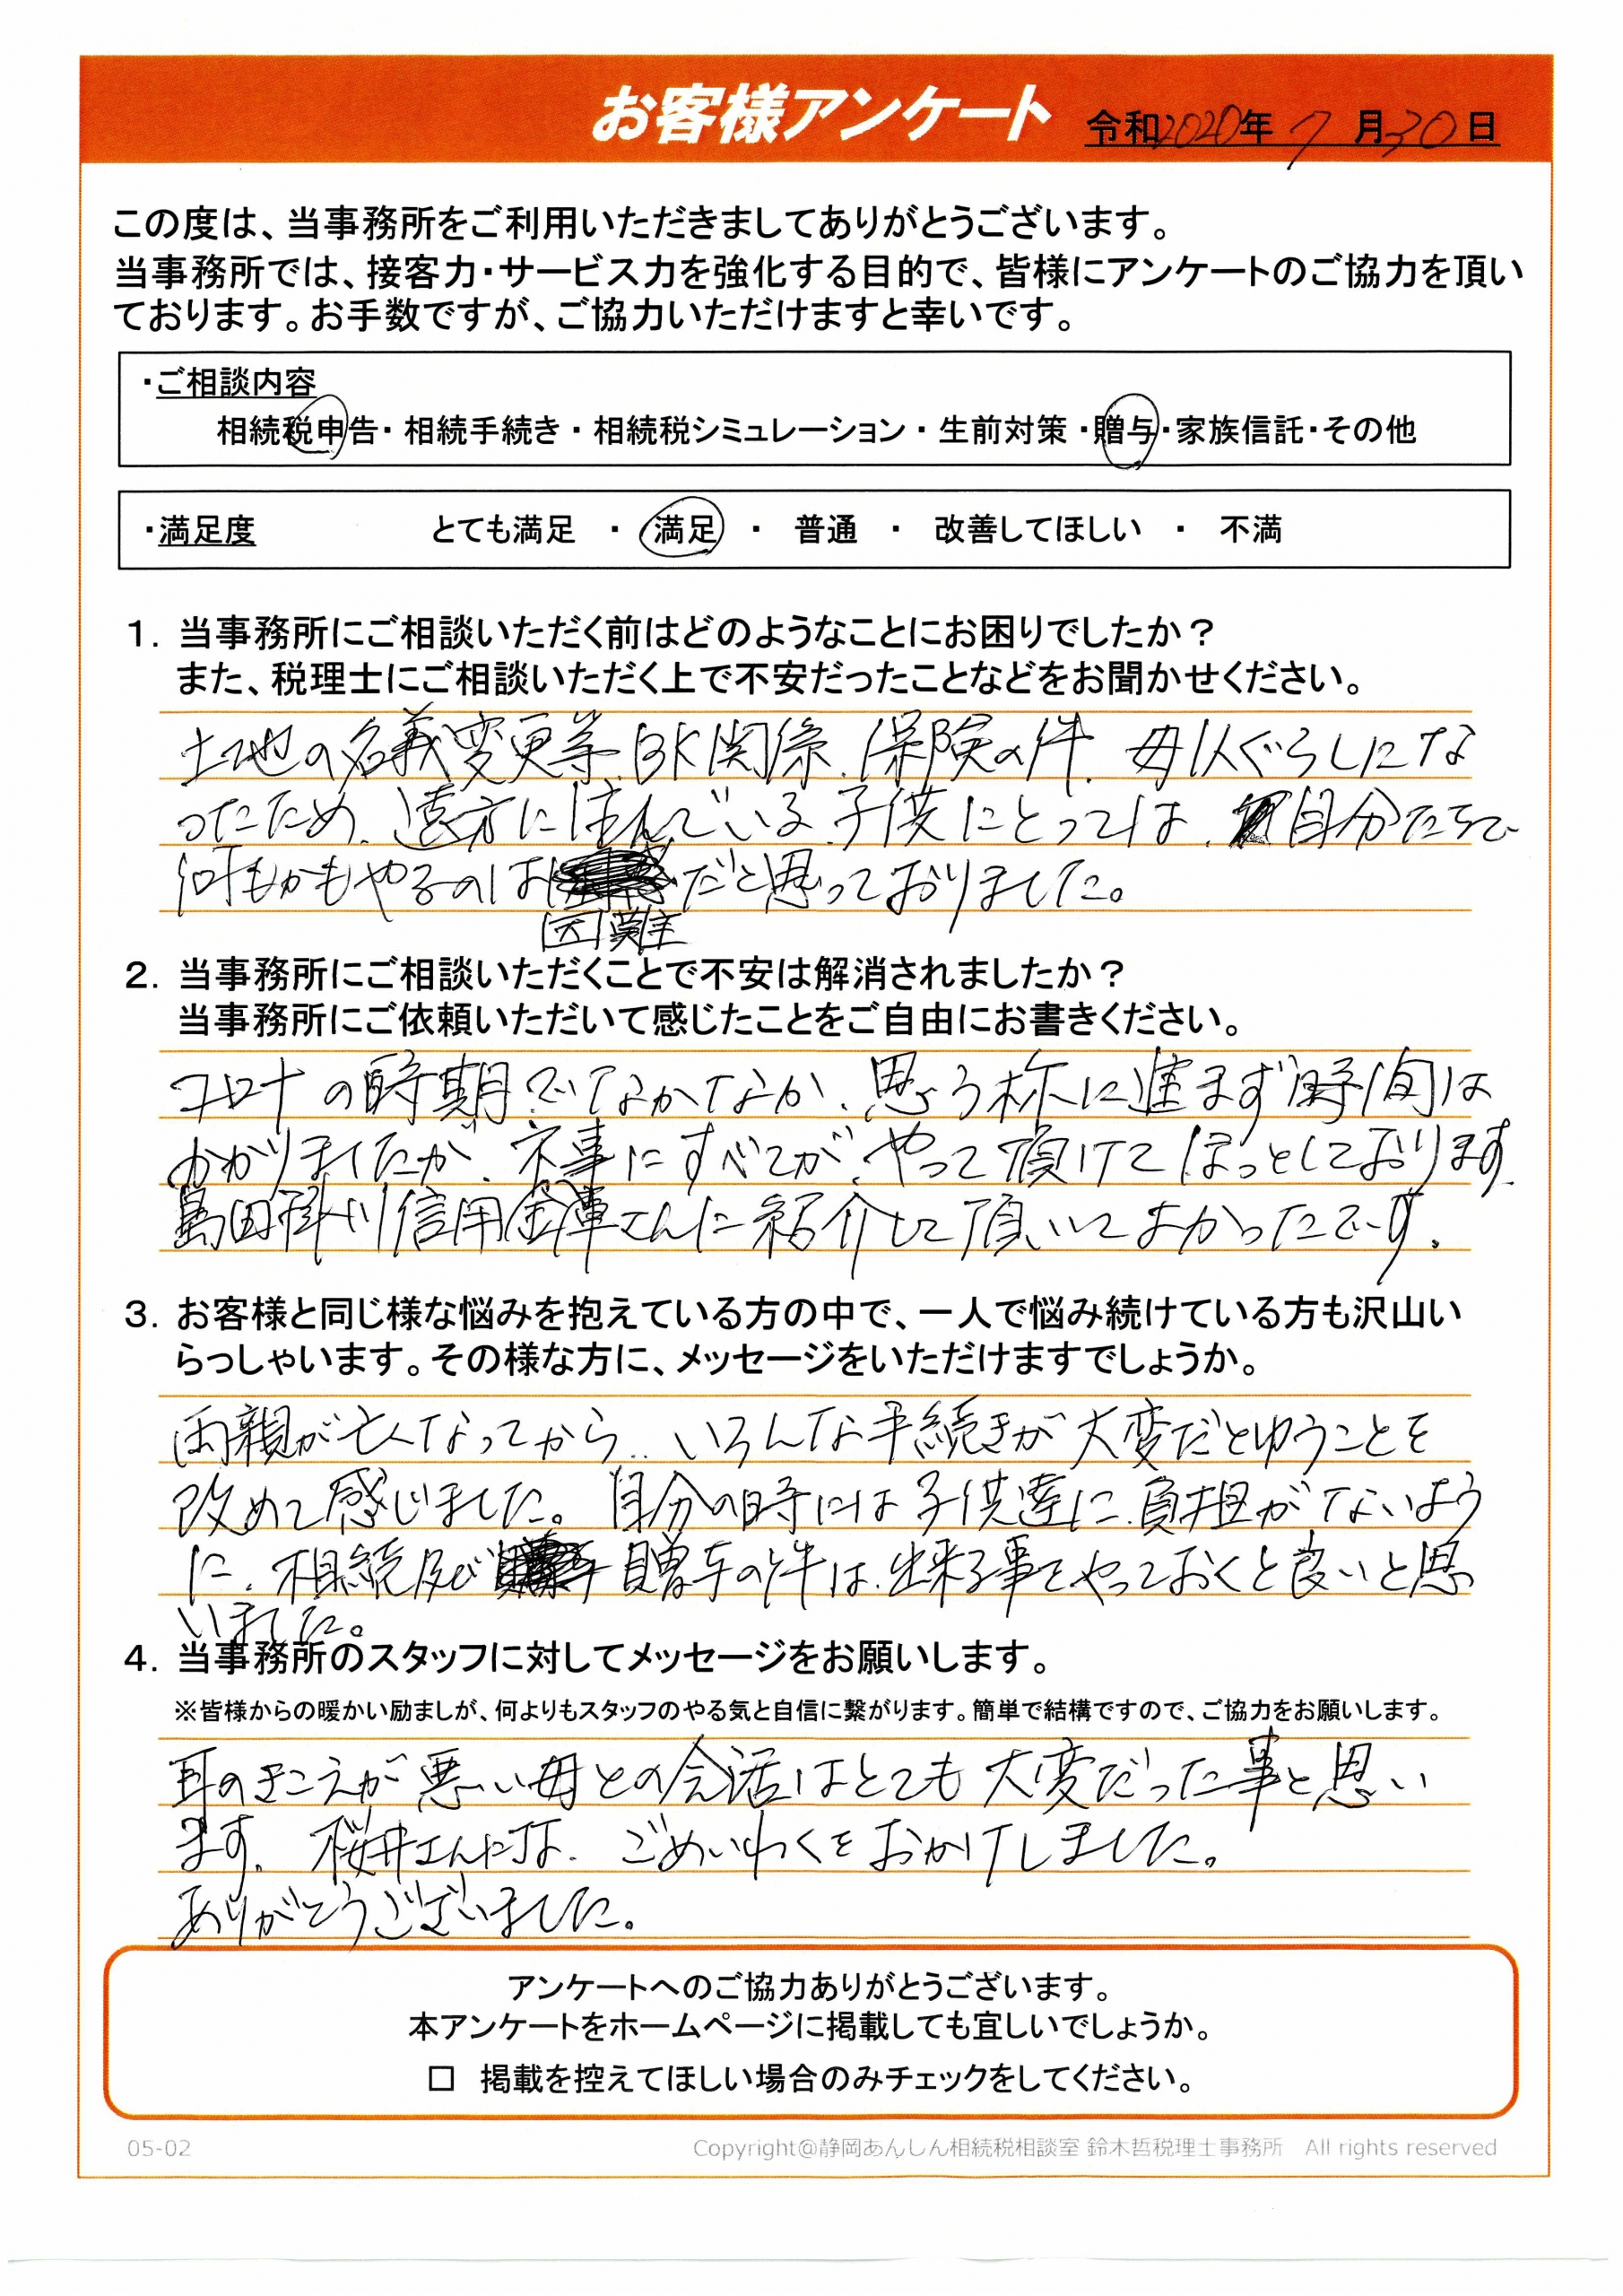 お客様アンケート 令和2020年 7 月30日
この度は、当事務所をご利用いただきましてありがとうございます。
当事務所では、接客力・サービス力を強化する目的で、皆様にアンケートのご協力を頂い
ております。お手数ですが、ご協力いただけますと幸いです。
・ご相談内容
相続税申告・ 相続手続き ・ 相続税シミュレーション ・ 生前対策 ・贈与・家族信託・その他
・満足度 とても満足 ・ 満足 ・ 普通 ・ 改善してほしい ・ 不満
1. 当事務所にご相談いただく前はどのようなことにお困りでしたか？
また、税理士にご相談いただく上で不安だったことなどをお聞かせください。
土地の名義変更等、BK関係、保険の件、母1人ぐらしにな
ったため、遠方に住んでいる子供にとっては、自分たちで
何もかもやるのは だと思っておりました。
困難
2. 当事務所にご相談いただくことで不安は解消されましたか？
当事務所にご依頼いただいて感じたことをご自由にお書きください。
コロナの時期でなかなか、思う様に進まず時間は
かかりましたが、無事にすべてが、やって頂けてほっとしております。
島田掛川信用金庫さんに紹介して頂いてよかったです。
3. お客様と同じ様な悩みを抱えている方の中で、一人で悩み続けている方も沢山い
らっしゃいます。その様な方に、メッセージをいただけますでしょうか。
両親が亡くなってから… いろんな手続きが大変だとゆうことを
改めて感じました。自分の時には子供達に、負担がないよう
に、相続及び 贈与の件は、出来る事をやっておくと良いと思
いました。
4. 当事務所のスタッフに対してメッセージをお願いします。
※皆様からの暖かい励ましが、何よりもスタッフのやる気と自信に繋がります。簡単で結構ですので、ご協力をお願いします。
耳のきこえが悪い母との会話はとても大変だった事と思い
ます。桜井さんには、ごめいわくをおかけしました。
ありがとうございました。
アンケートへのご協力ありがとうございます。
本アンケートをホームページに掲載しても宜しいでしょうか。
□ 掲載を控えてほしい場合のみチェックをしてください。
05-02 Copyright@静岡あんしん相続税相談室 鈴木哲税理士事務所 All rights reserved